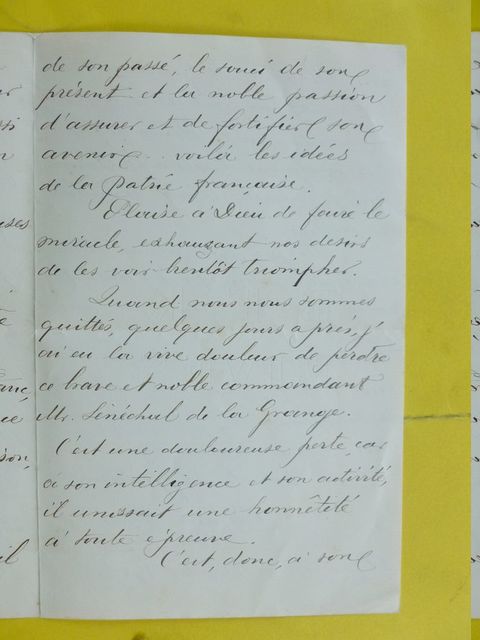 de son passé, le souci de son
présent et la noble passion
d'assurer et de fortifier son
avenir.. voilà les idées
de la Patrie française.
Plaise à Dieu de faire le
miracle, exhauzant nos desirs
de les voir bientôt triompher.
Quand nous nous sommes
quittés, quelques jours après, j'
ai eu la vive douleur de perdre
ce brave et noble commandant
Mr. Sénéchal de la Grange.
C'est une douloureuse perte, car
à son intelligence et son activité,
il unissait une honnêteté
à toute épreuve.
C'est, donc, à son